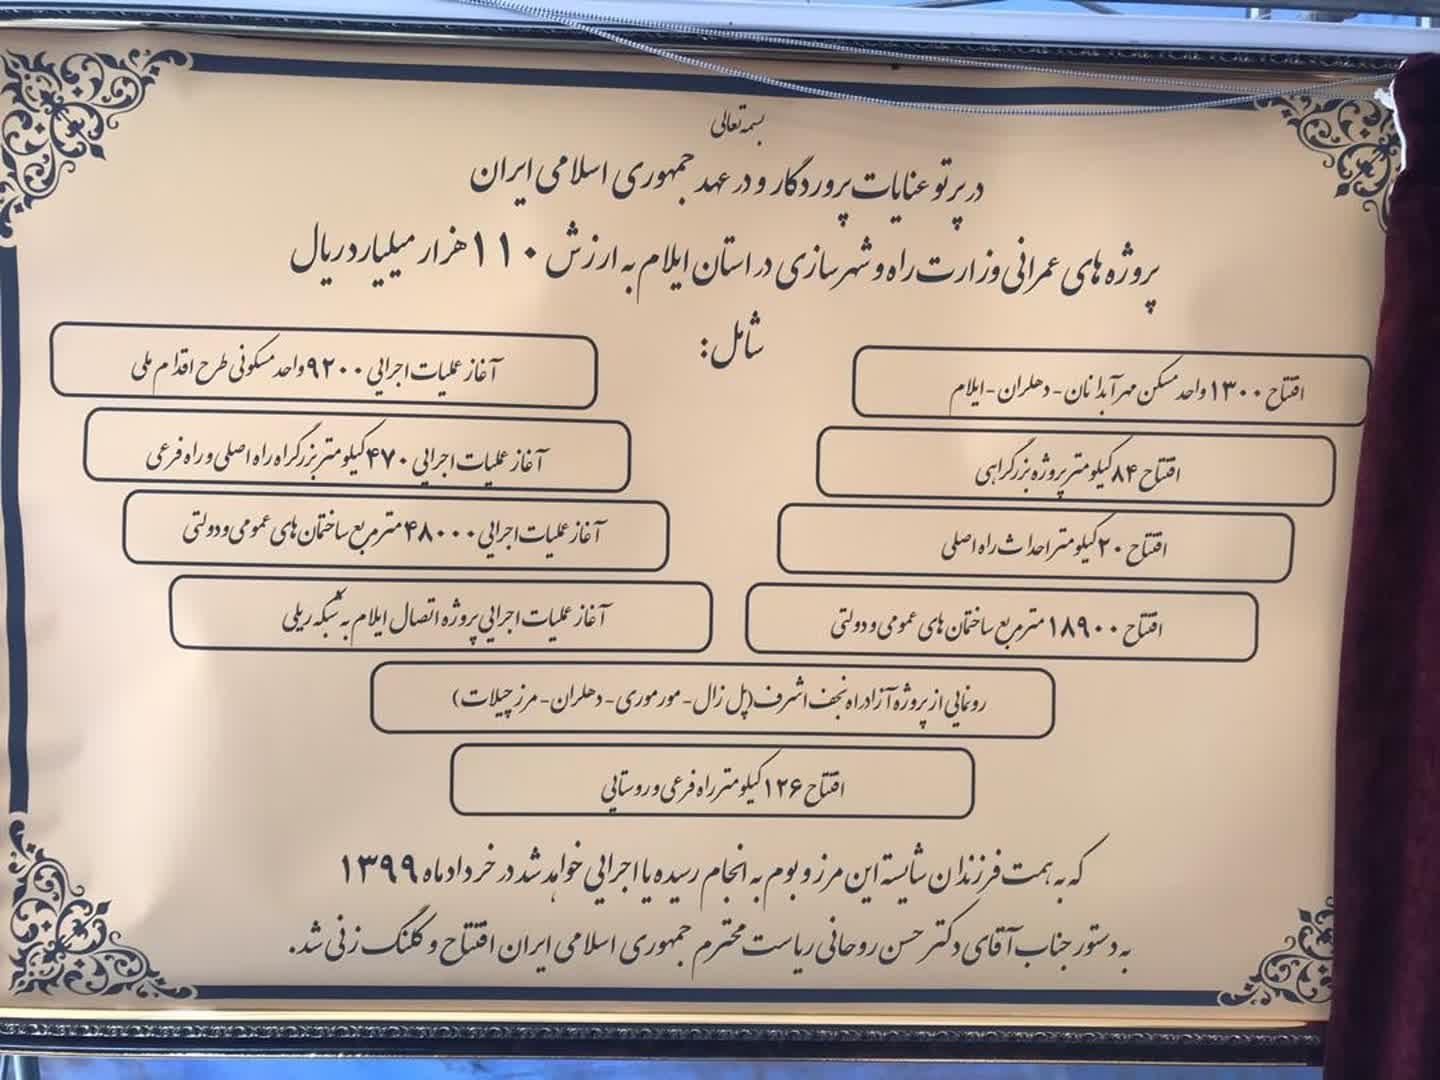 بسمه تعالی
در پرتو عنایات پروردگار و در عهد جمهوری اسلامی ایران
پروژه های عمرانی وزارت راه و شهرسازی در استان ایلام به ارزش ۱۱۰ هزار میلیارد ریال
شامل:
افتتاح ۱۳۰۰ واحد مسکن مهر آبدانان - دهلران - ایلام
افتتاح ۸۴ کیلومتر پروژه بزرگراهی
افتتاح ۲۰ کیلومتر احداث راه اصلی
افتتاح ۱۸۹۰۰ مترمربع ساختمان های عمومی و دولتی
آغاز عملیات اجرایی ۹۲۰۰ واحد مسکونی طرح اقدام ملی
آغاز عملیات اجرایی ۴۷۰ کیلومتر بزرگراه راه اصلی و راه فرعی
آغاز عملیات اجرایی ۴۸۰۰۰ مترمربع ساختمان های عمومی و دولتی
آغاز عملیات اجرایی پروژه اتصال ایلام به شبکه ریلی
رونمایی از پروژه آزادراه نجف اشرف (پل زال - مورموری - دهلران - مرز چیلات)
افتتاح ۱۲۶ کیلومتر راه فرعی و روستایی
که به همت فرزندان شایسته این مرز و بوم به انجام رسیده یا اجرایی خواهد شد در خرداد ماه ۱۳۹۹
به دستور جناب آقای دکتر حسن روحانی ریاست محترم جمهوری اسلامی ایران افتتاح و کلنگ زنی شد.